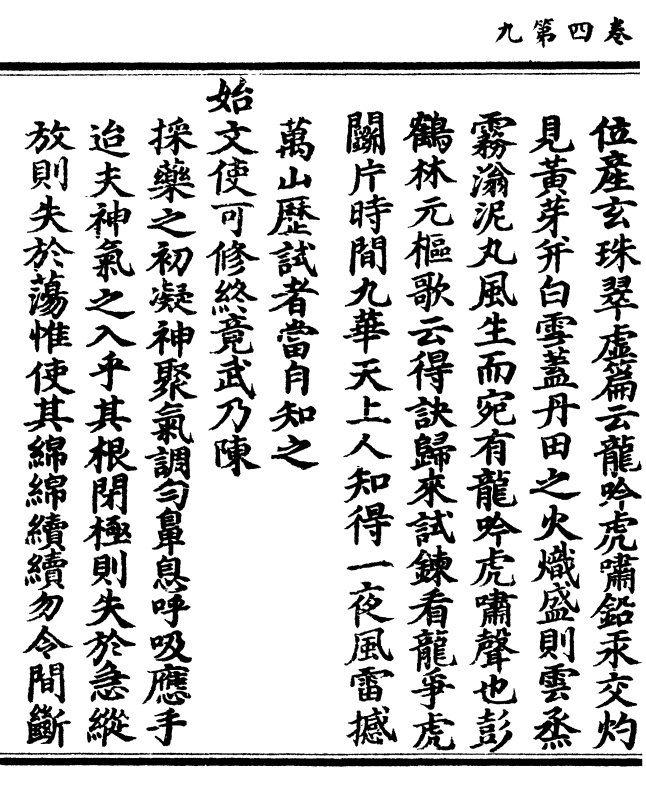 卷四第九
位產玄珠翠虛篇云龍吟虎嘯鉛汞交灼
見黃芽并白雪蓋丹田之火熾盛則雲烝
霧滃泥丸風生而宛有龍吟虎嘯聲也彭
鶴林元樞歌云得訣歸來試鍊看龍爭虎
鬭片時間九華天上人知得一夜風雷撼
萬山歷試者當自知之
始文使可修終竟武乃陳
採藥之初凝神聚氣調勻鼻息呼吸應手
迨夫神氣之入乎其根閉極則失於急縱
放則失於蕩惟使其綿綿續續勿令間斷